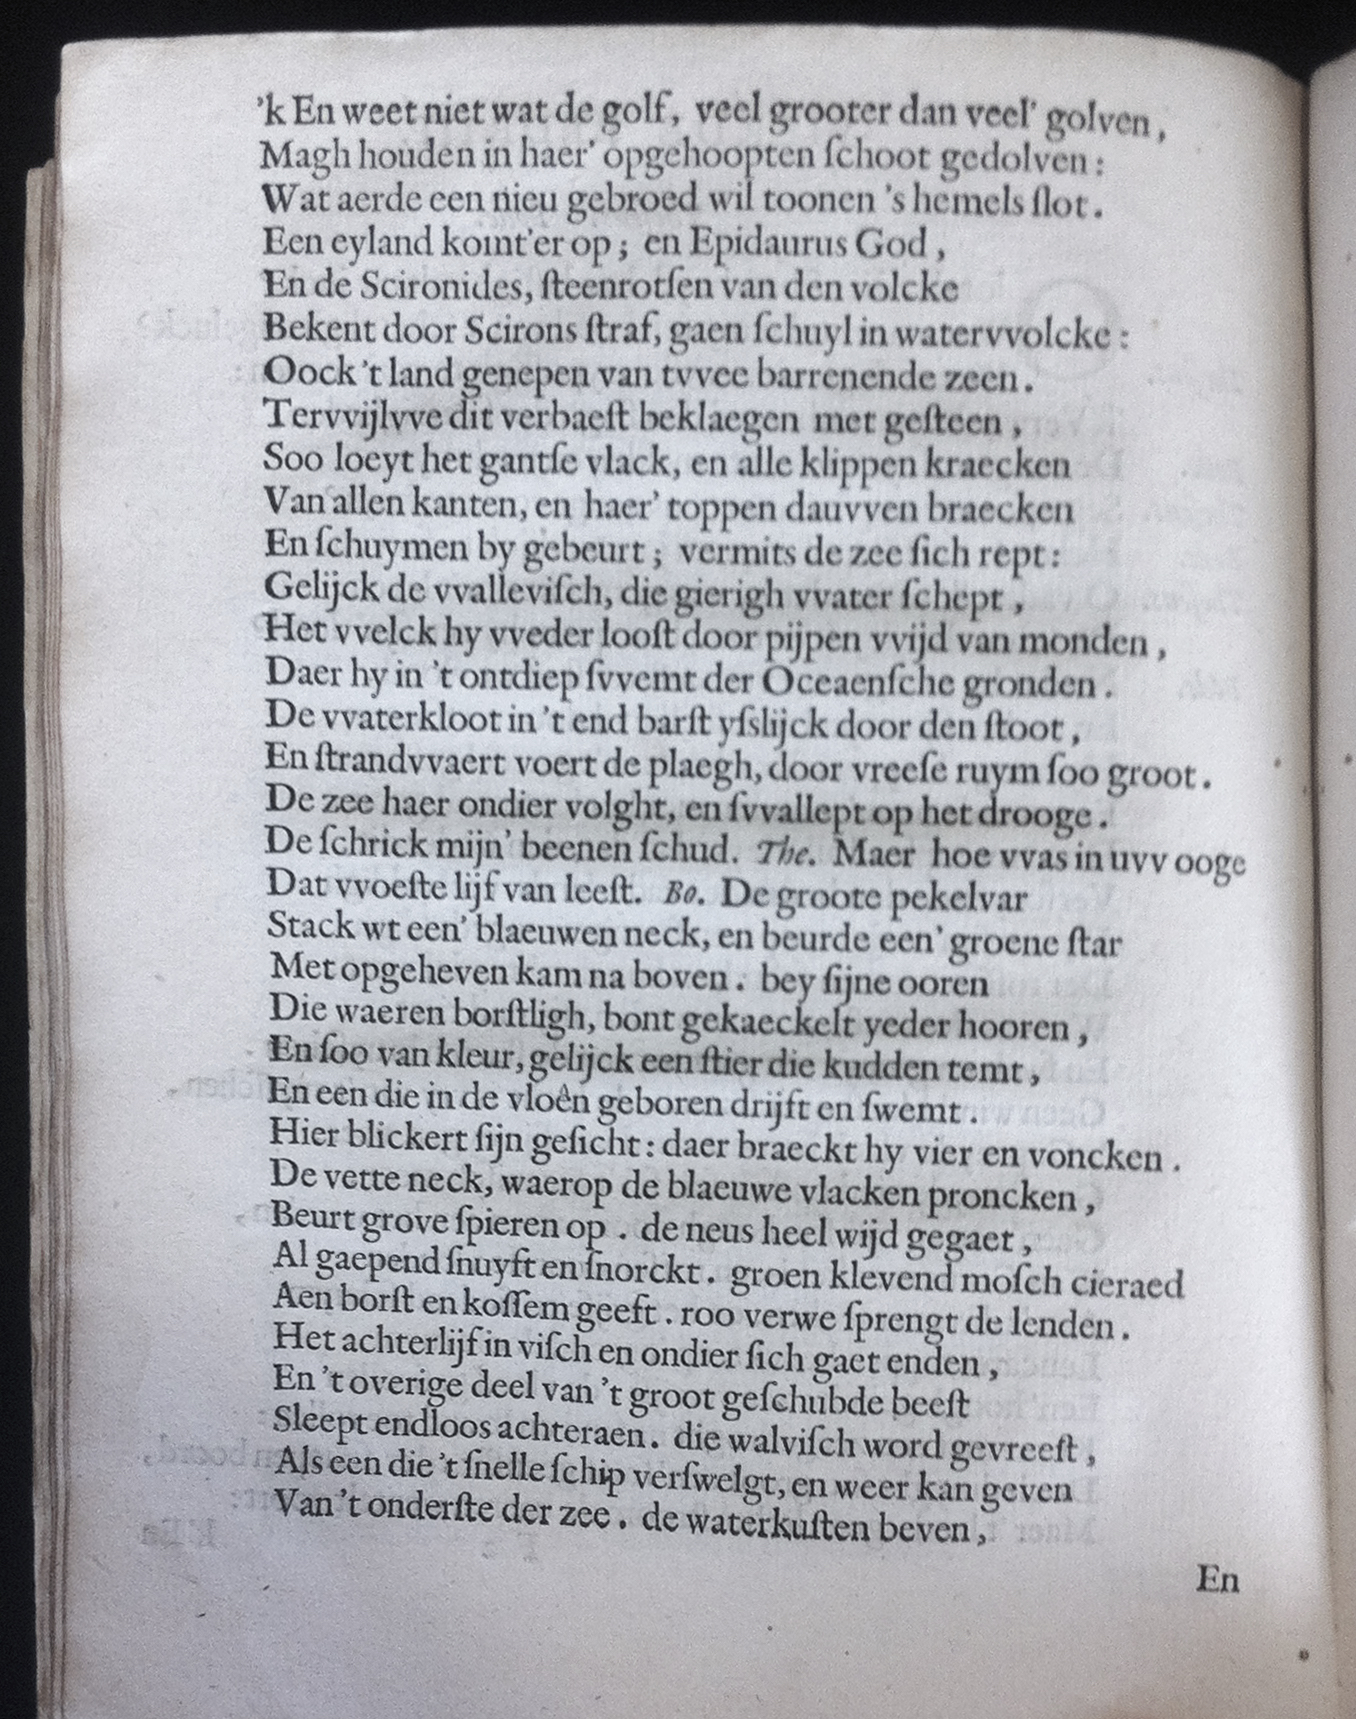 ’k En weet niet wat de golf, veel grooter dan veel’ golven,
Magh houden in haer’ opgehoopten ſchoot gedolven:
Wat aerde een nieu gebroed wil toonen ’s hemels ſlot.
Een eyland komt’er op; en Epidaurus God,
En de Scironides, ſteenrotſen van den volcke
Bekent door Scirons ſtraf, gaen ſchuyl in watervvolcke:
Oock ’t land genepen van tvvee barrenende zeen.
Tervvijlvve dit verbaeſt beklaegen met geſteen,
Soo loeyt het gantſe vlack, en alle klippen kraecken
Van allen kanten, en haer’ toppen dauvven braecken
En ſchuymen by gebeurt; vermits de zee ſich rept:
Gelijck de vvalleviſch, die gierigh vvater ſchept,
Het vvelck hy vveder looſt door pijpen vvijd van monden,
Daer hy in ’t ontdiep ſvvemt der Oceaenſche gronden.
De vvaterkloot in ’t end barſt yſslijck door den ſtoot,
En ſtrandvvaert voert de plaegh, door vreeſe ruym ſoo groot.
De zee haer ondier volght, en ſvvallept op het drooge.
De ſchrick mijn’ beenen ſchud. The. Maer hoe vvas in uvv ooge
Dat vvoeſte lijf van leeſt. Bo. De groote pekelvar
Stack wt een’ blaeuwen neck, en beurde een’ groene ſtar
Met opgeheven kam na boven. bey ſijne ooren
Die waeren borſtligh, bont gekaeckelt yeder hooren,
En ſoo van kleur, gelijck een ſtier die kudden temt,
En een die in de vloên geboren drijft en ſwemt.
Hier blickert ſijn geſicht: daer braeckt hy vier en voncken.
De vette neck, waerop de blaeuwe vlacken proncken,
Beurt grove ſpieren op. de neus heel wijd gegaet,
Al gaepend ſnuyft en ſnorckt. groen klevend moſch cieraed
Aen borſt en koſſem geeft. roo verwe ſprengt de lenden.
Het achterlijf in viſch en ondier ſich gaet enden,
En ’t overige deel van ’t groot geſchubde beeſt
Sleept endloos achteraen. die walviſch word gevreeſt,
Als een die ’t ſnelle ſchip verſwelgt, en weer kan geven
Van ’t onderſte der zee. de waterkuſten beven,
En